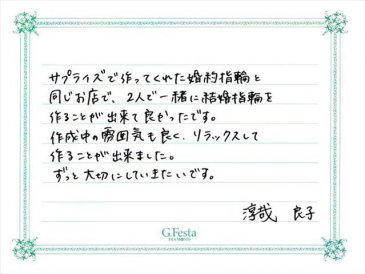 サプライズで作ってくれた婚約指輪と
同じお店で、2人で一緒に結婚指輪を
作ることが出来て良かったです。
作成中の雰囲気も良く、リラックスして
作ることが出来ました。
ずっと大切にしていきたいです。
淳哉 良子
G.Festa
DIAMOND